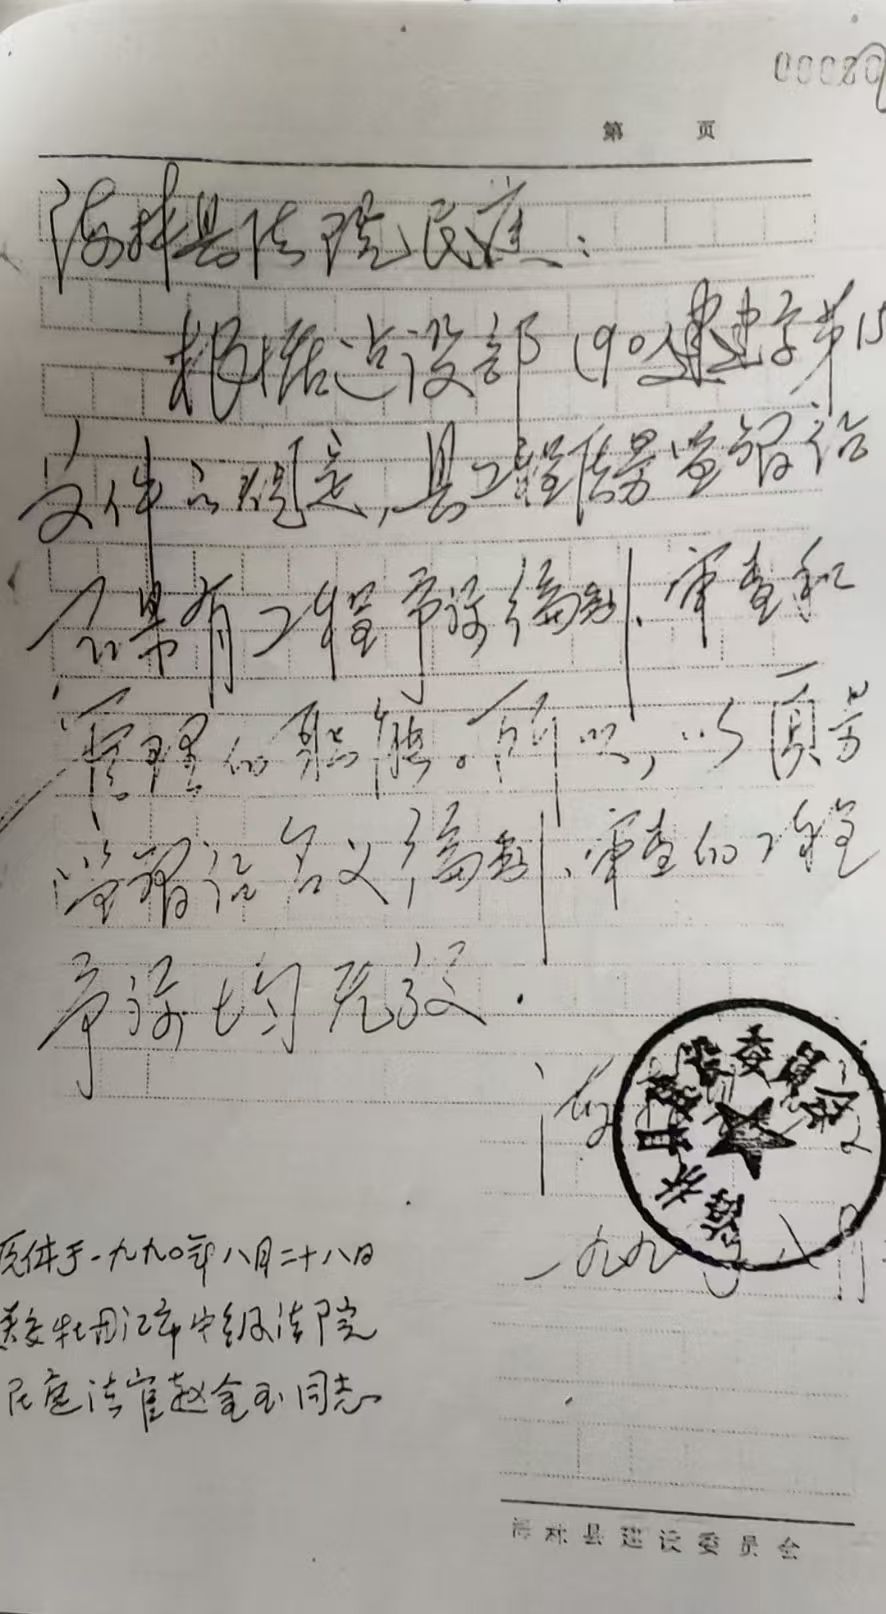 00020
第 页
海林县法院民庭：
根据建设部（90）建建字第15
文件的规定，县工程预算管理站
才具有工程预算编制、审查和
管理的职能。所以，以
名义编制、审查的工程
预算均无效．
海林
一九九〇年八月
海林县建设委员会
原件于一九九〇年八月二十八日
交牡丹江市中级法院
民庭法官赵金玉同志
海林县建设委员会